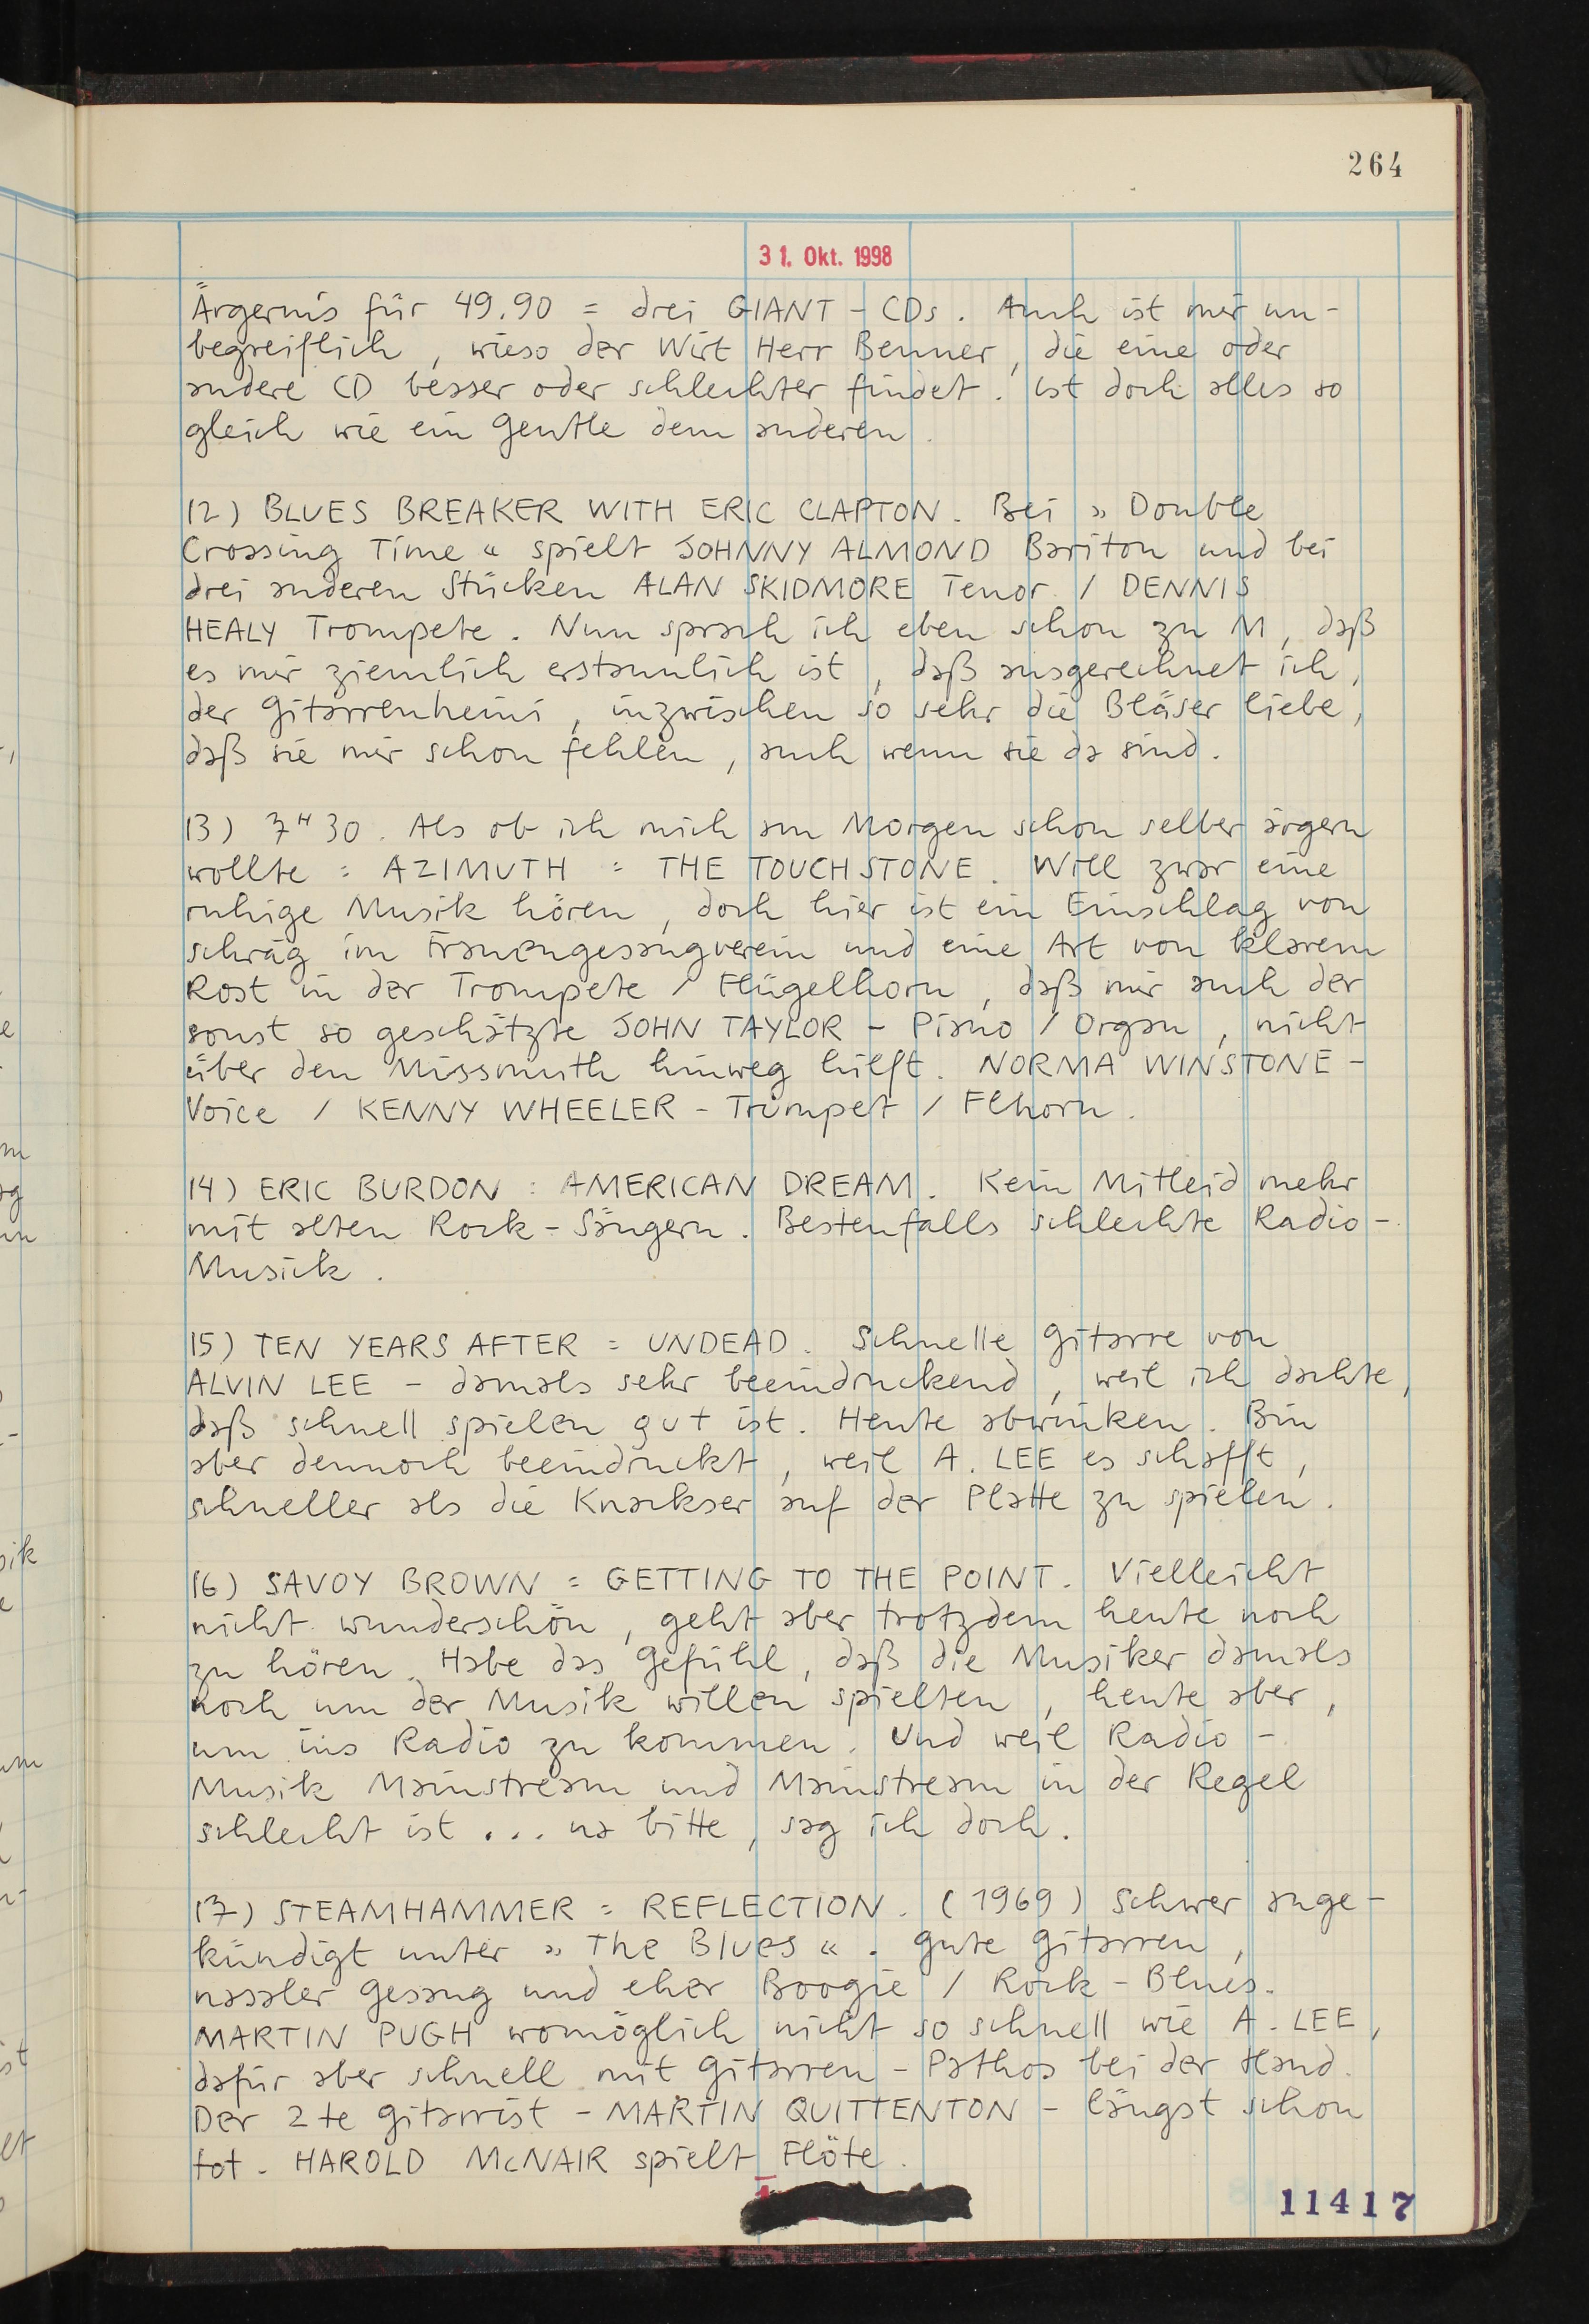 264
31. Okt. 1998
Ärgernis für 49.90 = drei GIANT - CDs. Auch ist mir un-
begreiflich, wieso der Wirt Herr Benner, die eine oder
andere CD besser oder schlechter findet. Ist doch alles so
gleich wie ein Gentle dem anderen.
12) BLUES BREAKER WITH ERIC CLAPTON. Bei » Double
Crossing Time « spielt JOHNNY ALMOND Bariton und bei
drei anderen Stücken ALAN SKIDMORE Tenor / DENNIS
HEALY Trompete. Nun sprach ich eben schon zu M, daß
es mir ziemlich erstaunlich ist, daß ausgerechnet ich,
der Gitarrenheini, inzwischen so sehr die Bläser liebe,
daß sie mir schon fehlen, auch wenn sie da sind.
13) 7H30. Als ob ich mich am Morgen schon selber ärgern
wollte = AZIMUTH = THE TOUCHSTONE. Will zwar eine
ruhige Musik hören, doch hier ist ein Einschlag von
schräg im Frauengesangverein und eine Art von klarem
Rost in der Trompete / Flügelhorn, daß mir auch der
sonst so geschätzte JOHN TAYLOR - Piano / Organ, nicht
über den Missmuth hinweg hilft. NORMA WINSTONE -
Voice / KENNY WHEELER - Trumpet / Flhorn.
14) ERIC BURDON : AMERICAN DREAM. Kein Mitleid mehr
mit alten Rock - Sängern. Bestenfalls schlechte Radio -
Musick.
15) TEN YEARS AFTER = UNDEAD. Schnelle Gitarre von
ALVIN LEE - damals sehr beeindruckend, weil ich dachte,
daß schnell spielen gut ist. Heute abwinken. Bin
aber dennoch beeindruckt, weil A. LEE es schafft,
schneller als die Knackser auf der Platte zu spielen.
16) SAVOY BROWN = GETTING TO THE POINT. Vielleicht
nicht wunderschön, geht aber trotzdem heute noch
zu hören. Habe das Gefühl, daß die Musiker damals
noch um der Musik willen spielten, heute aber,
um ins Radio zu kommen. Und weil Radio -
Musik Mainstream und Mainstream in der Regel
schlecht ist ... na bitte, sag ich doch.
17) STEAMHAMMER = REFLECTION. (1969) Schwer ange-
kündigt unter » The Blues «. Gute Gitarren,
nasaler Gesang und eher Boogie / Rock - Blues.
MARTIN PUGH womöglich nicht so schnell wie A. LEE,
dafür aber schnell mit Gitarren - Pathos bei der Hand.
Der 2te Gitarrist - MARTIN QUITTENTON - längst schon
tot. HAROLD McNAIR spielt Flöte.
11417